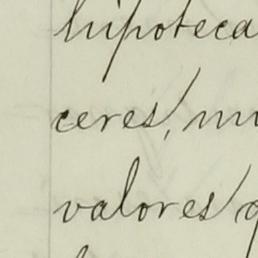 hipoteca
ceres, mu
valores q